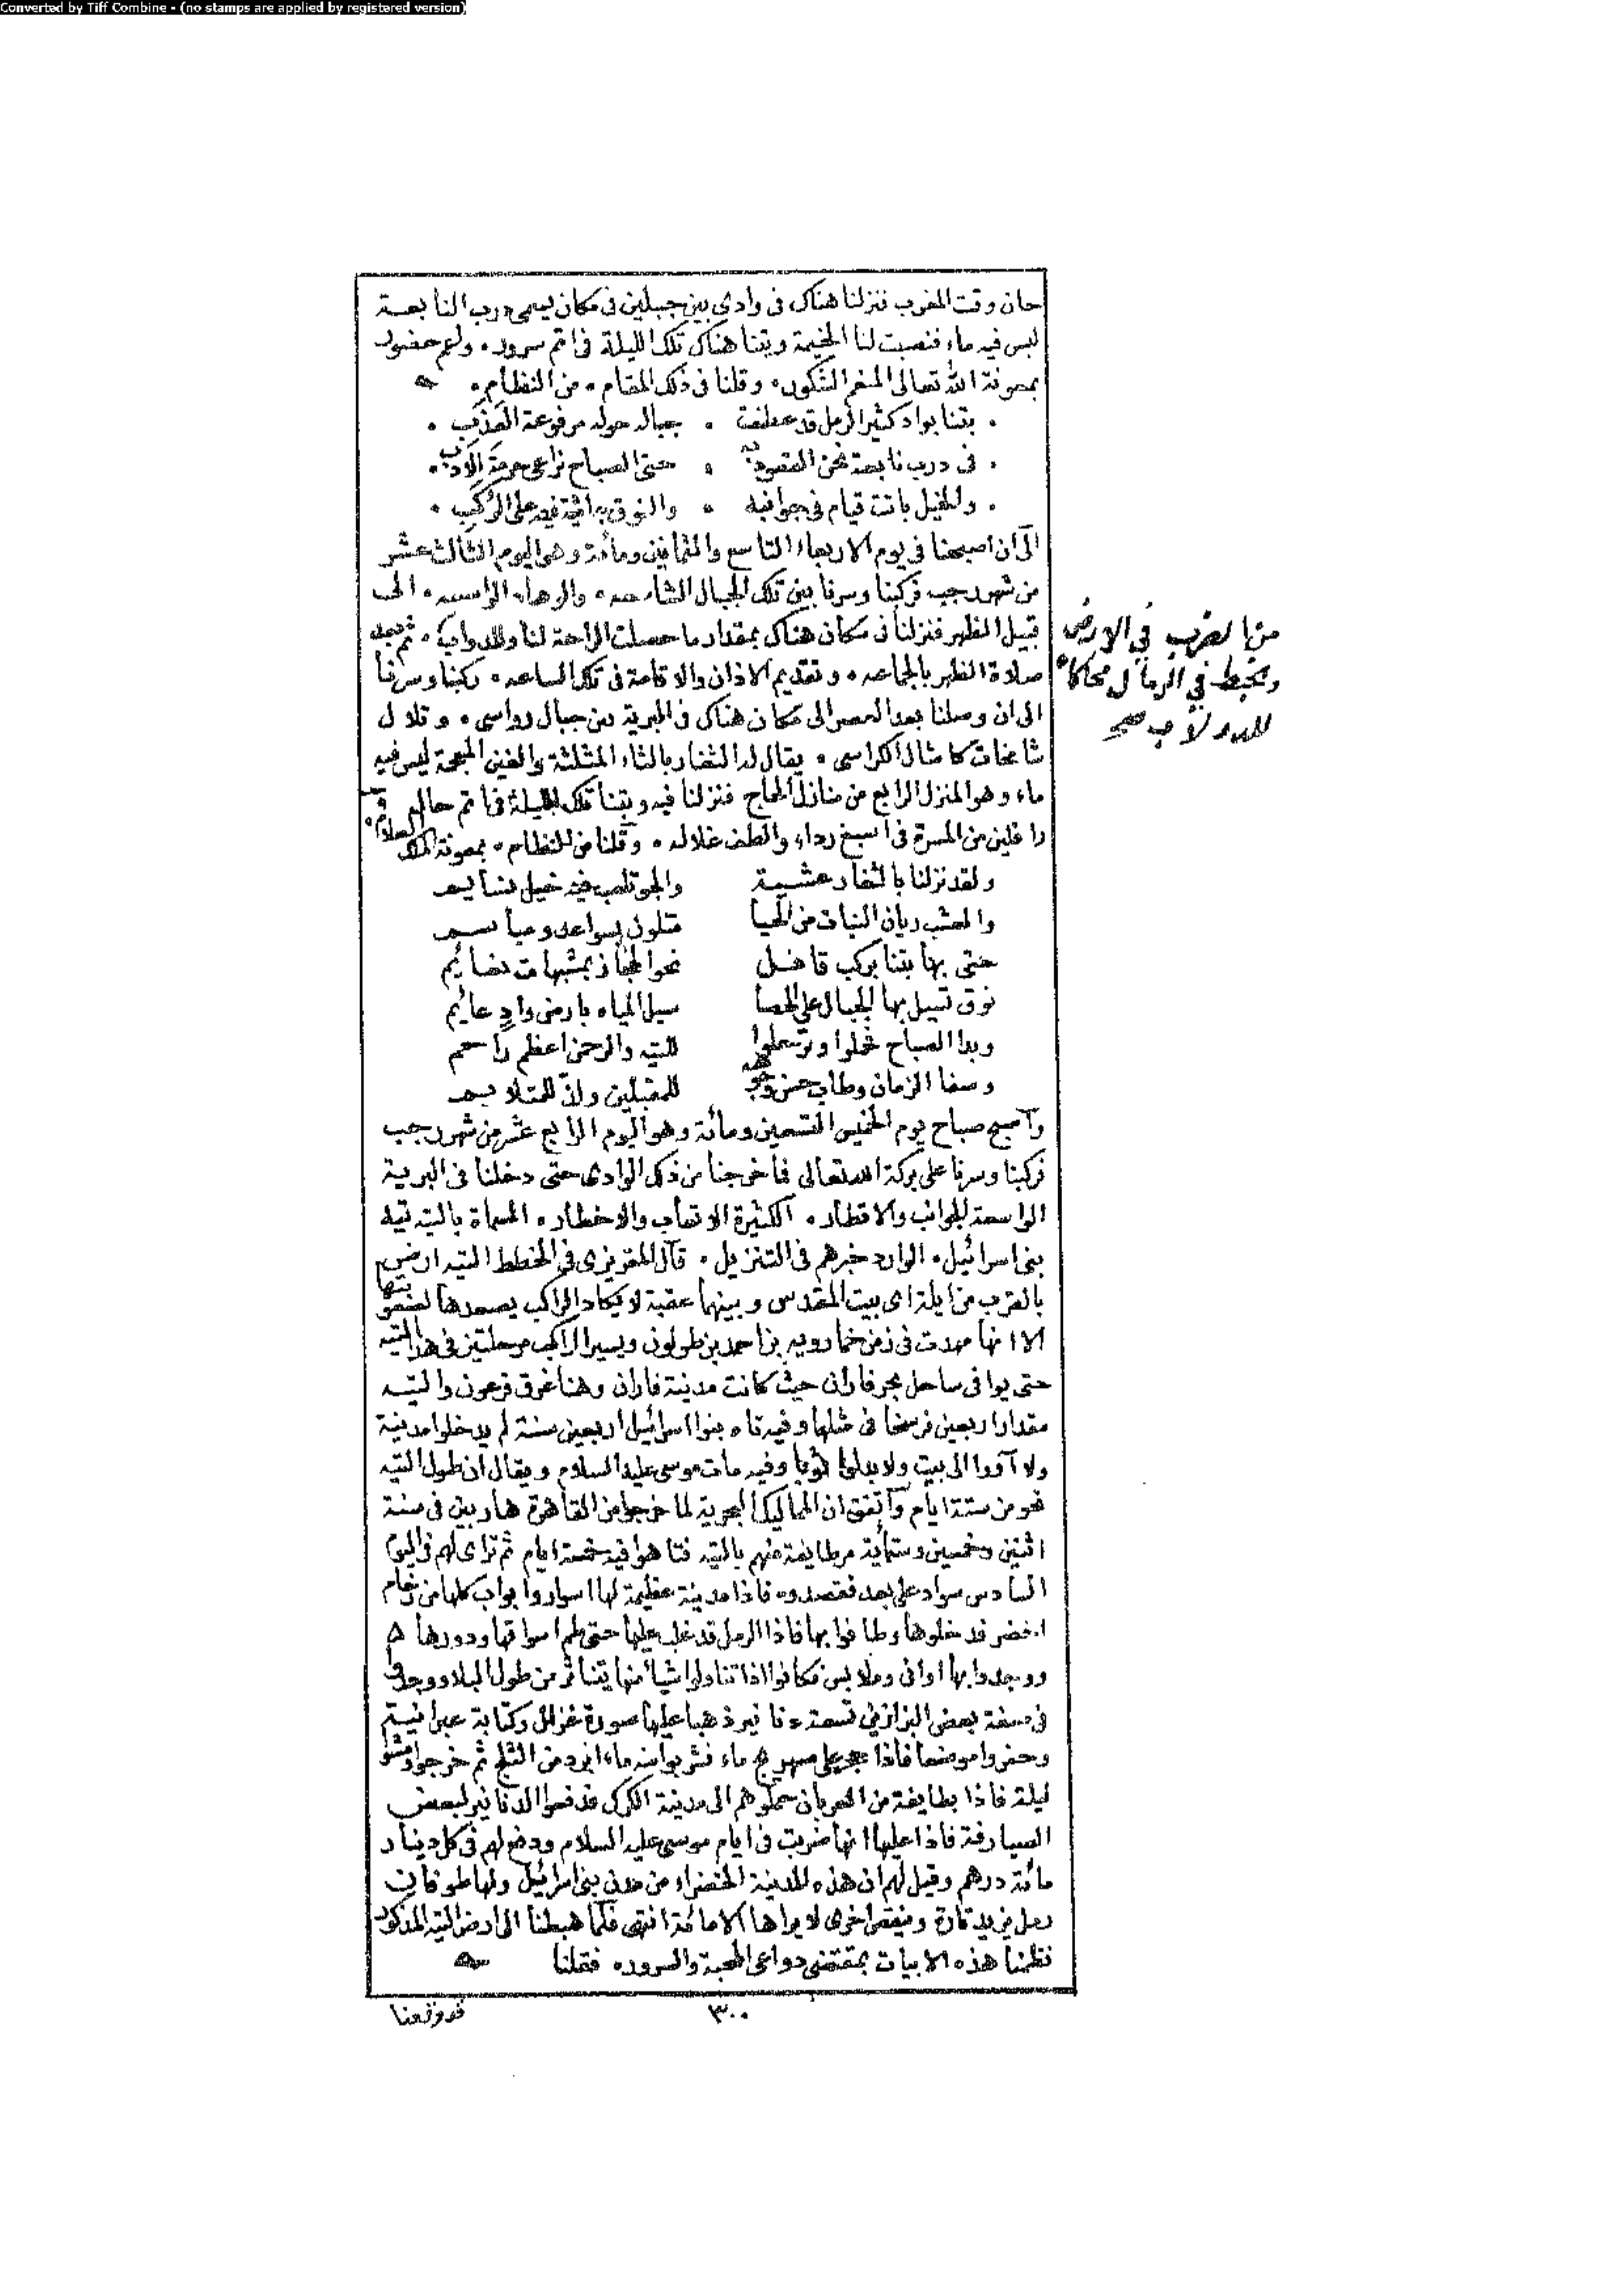 Converted by Tiff Combine - (no stamps are applied by registered version)
حان وقت المغرب فنزلنا هناك فى وادى بين جبلين فى مكان يسمى درب النابعة
ليس فيه ماء فنصبت لنا الخيمة وبتنا هناك تلك الليلة فى اتم سرور ٠ واعم حضور
بمعونة الله تعالى المنعم الشكور ٠ وقلنا فى ذلك المقام ٠ من النظام ٠
بتنا بواد كثير الرمل قد عطفت ٠ جبال حوله مرفوعة العذب ٠
فى درب نابعة نحن القعود به ٠ حتى الصباح نراعى حرمة الادب ٠
والخيل باتت قيام فى جوانبه ٠ والنوق باثية فيه على الركب ٠
الى ان اصبحنا فى يوم الاربعاء التاسع والثمانين ومائة وهو اليوم الثالث عشر
من شهر رجب فركبنا وسرنا بين تلك الجبال الشامخه ٠ والرهاء الواسعه ٠ الى
قبيل الظهر فنزلنا فى مكان هناك بمقدار ما حصلت الراحة لنا وللدواب ٠ ثم بعد
من الضرب في الارض
وتخبط في الرمال محاكاة
للدولاب صح
صلاة الظهر بالجماعه ٠ وتقديم الاذان والاقامة فى تلك الساعه ٠ ركبنا وسرنا
الى ان وصلنا بعد العصر الى مكان هناك فى البرية بين جبال رواسى ٠ وتلال
شامخات كامثال الكراسى ٠ يقال له الثغار بالثاء المثلثة والغين المعجمة ليس فيه
ماء وهو المنزل الرابع من منازل الحاج فنزلنا فيه وبتنا تلك الليلة فى اتم حاله
رافلين من المسرة فى اسبغ رداء والطف غلاله ٠ وقلنا من النظام ٠ بمعونة الملك العلام
ولقد نزلنا بالثغار عشية والجو تلعب فيه خيل نسايم
والعشب ريان النبات من الحيا متلون بسواعد ومباسم
حتى بها بتنا بركب قاضل نحو الحجاز بمشبهات نعايم
نوق تسيل بها الجبال على الحصا سيل المياه بارض واد عايم
وبدا الصباح فحملوا وترحلوا للتيه والرحمن اعظم راحم
وصفا الزمان وطاب حسن وجوهه للمقبلين ولذ للمتلايم
واصبح صباح يوم الخميس التسعين ومائة وهو اليوم الرابع عشر من شهر رجب
فركبنا وسرنا على بركة الله تعالى فما خرجنا من ذلك الوادى حتى دخلنا فى البرية
الواسعة الجوانب والاقطار ٠ الكثيرة الاتعاب والاخطار ٠ المسماة بالتيه تيه
بنى اسرائيل ٠ الوارد خبرهم فى التنزيل ٠ قال المقريزى فى الخطط التيه ارض
بالقرب من ايلة اى بيت المقدس وبينهما عقبة لا يكاد الراكب يصعدها لصعوبتها
الا انها مهدت فى زمن خمارويه بن احمد بن طولون ويسير الراكب مرحلتين فى هذا التيه
حتى يوافى ساحل بحر فاران حيث كانت مدينة فاران وهنا غرق فرعون والتيه
مقدار اربعين فرسخا فى مثلها وفيه تاه بنوا اسرائيل اربعين سنة لم يدخلوا مدينة
ولا آووا الى بيت ولا بدلوا ثوبا وفيه مات موسى عليه السلام ويقال ان طول التيه
نحو من ستة ايام واتفق ان المماليك البحرية لما خرجوا من القاهرة هاربين فى سنة
اثنين وخمسين وستماية مر طايفة منهم بالتيه فتاهوا فيه خمسة ايام ثم تراى لهم فى اليوم
السادس سواد على بعد فقصدوه فاذا مدينة عظيمة لها اسوار وابواب كلها من رخام
اخضر فدخلوها وطافوا بها فاذا الرمل قد غلب عليها حتى طم اسواقها ودورها
ووجدوا بها اوانى وملابس فكانوا اذا تناولوا شيأ منها يتناثر من طول البلا ووجدوا
فى صفة بعض البزازين تسعة دنانير ذهبا عليها صورة غزال وكتابة عبرانية
وحفروا موضعا فاذا حجر على صهريج ماء فشربوا منه ماء ابرد من الثلج ثم خرجوا ومشوا
ليلة فاذا بطايفة من العربان حملوهم الى مدينة الكرك فدفعوا الدنانير لبعض
الصيارفة فاذا عليها انها ضربت فى ايام موسى عليه السلام ودفع لهم فى كل دينار
مائة درهم وقيل لهم ان هذه المدينة الخضراء من مدن بنى اسرائيل ولها طوفان
رمل يزيد تارة وينقص اخرى لا يراها الا تائه انتهى فلما هبطنا الى ارض التيه المذكور
نظمنا هذه الابيات بمقتضى دواعى المحبة والسرور فقلنا
٣٠٠
قد وقعنا